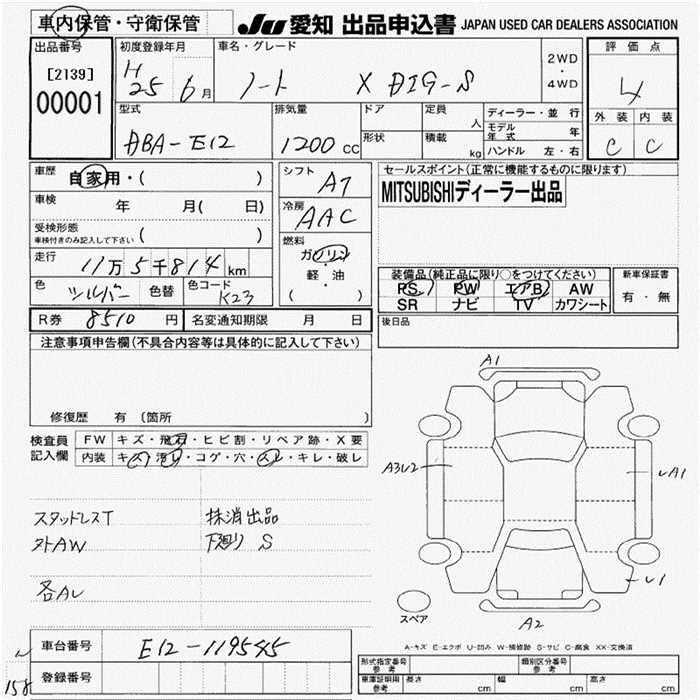 車内保管・守衛保管
JU 愛知 出品申込書 JAPAN USED CAR DEALERS ASSOCIATION
出品番号
[2139]
00001
初度登録年月
H 25 6月
車名・グレード
ノート X DIG-S
2WD
・
4WD
評価点
4
外装 内装
C C
型式
DBA-E12
排気量
1200 cc
ドア
形状
定員 人
積載 kg
ディーラー・並行
モデル年式 年
ハンドル 左・右
車歴
自家用・( )
車検 年 月( 日)
受検形態
車検付きのみ記入して下さい ( )
走行
11万5千814km
色 シルバー 色替 色コード K23
シフト
AT
冷房
AAC
燃料
ガソリン
・
軽・油
( )
セールスポイント(正常に機能するものに限ります)
MITSUBISHIディーラー出品
装備品(純正品に限り○をつけてください)
PS PW エアB AW
SR ナビ TV カワシート
新車保証書
有・無
後日品
R券 8510 円 名変通知期限 月 日
注意事項申告欄(不具合内容等は具体的に記入して下さい)
修復歴 有 (箇所 )
検査員記入欄
FW キズ・飛石・ヒビ割・リペア跡・X要
内装 キズ・汚レ・コゲ・穴・スレ・キレ・破レ
スタッドレスT
外AW
各AU
抹消出品
下廻り S
A1
A3U2
A1
U1
A2
スペア
A-キズ E-エクボ U-凹み W-補修跡 S-サビ C-腐食 XX-交換済
車台番号 E12-119545
登録番号
158
型式指定番号 参考
類別区分番号 参考
車庫証明用 参考 長さ cm 幅 cm 高さ cm